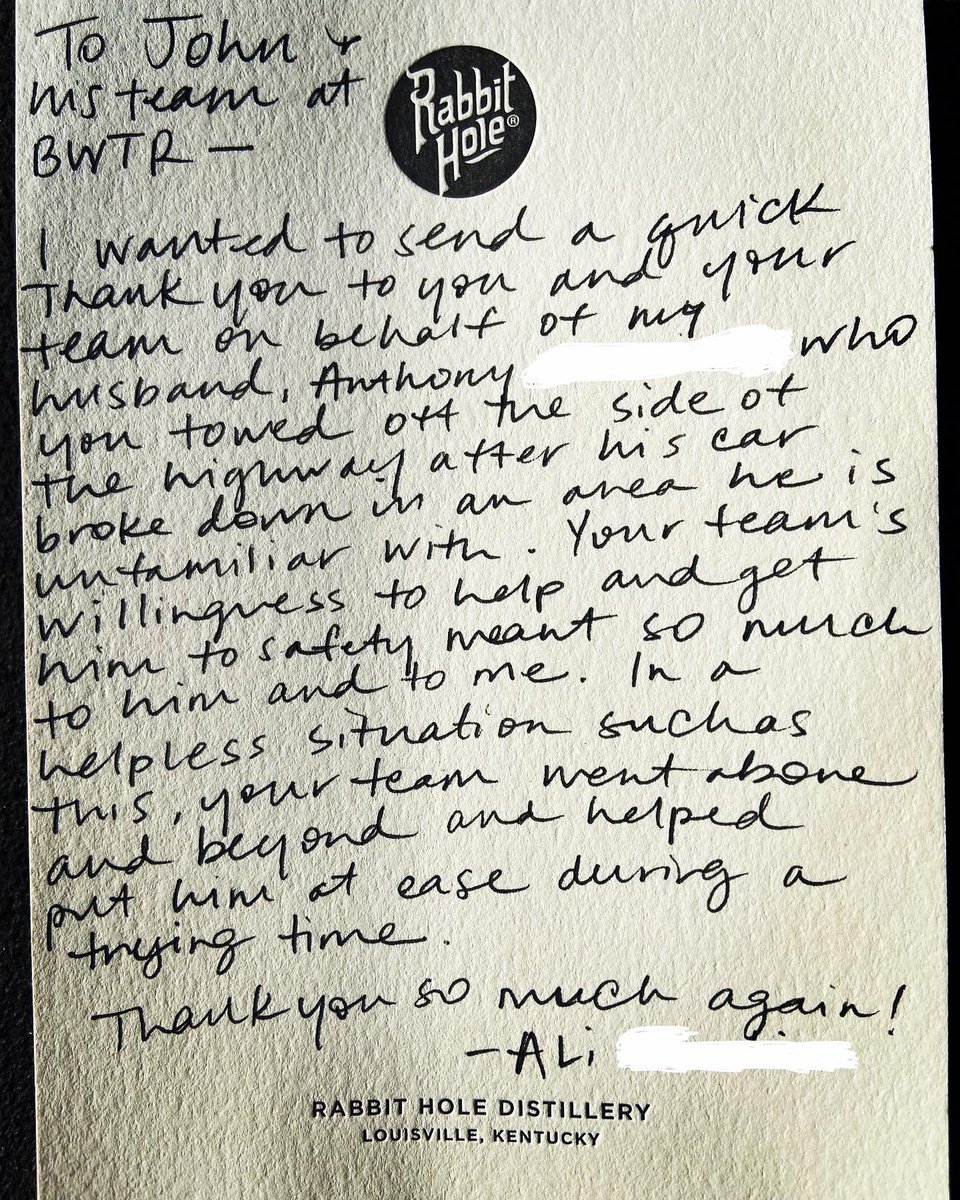 To John &
his team at
BWTR —
Rabbit
Hole®
I wanted to send a quick
Thank you to you and your
team on behalf of my
husband, Anthony who
you towed off the side of
the highway after his car
broke down in an area he is
unfamiliar with. Your team's
willingness to help and get
him to safety meant so much
to him and to me. In a
helpless situation such as
this, your team went above
and beyond and helped
put him at ease during a
trying time.
Thank you so much again!
- ALi
RABBIT HOLE DISTILLERY
LOUISVILLE, KENTUCKY